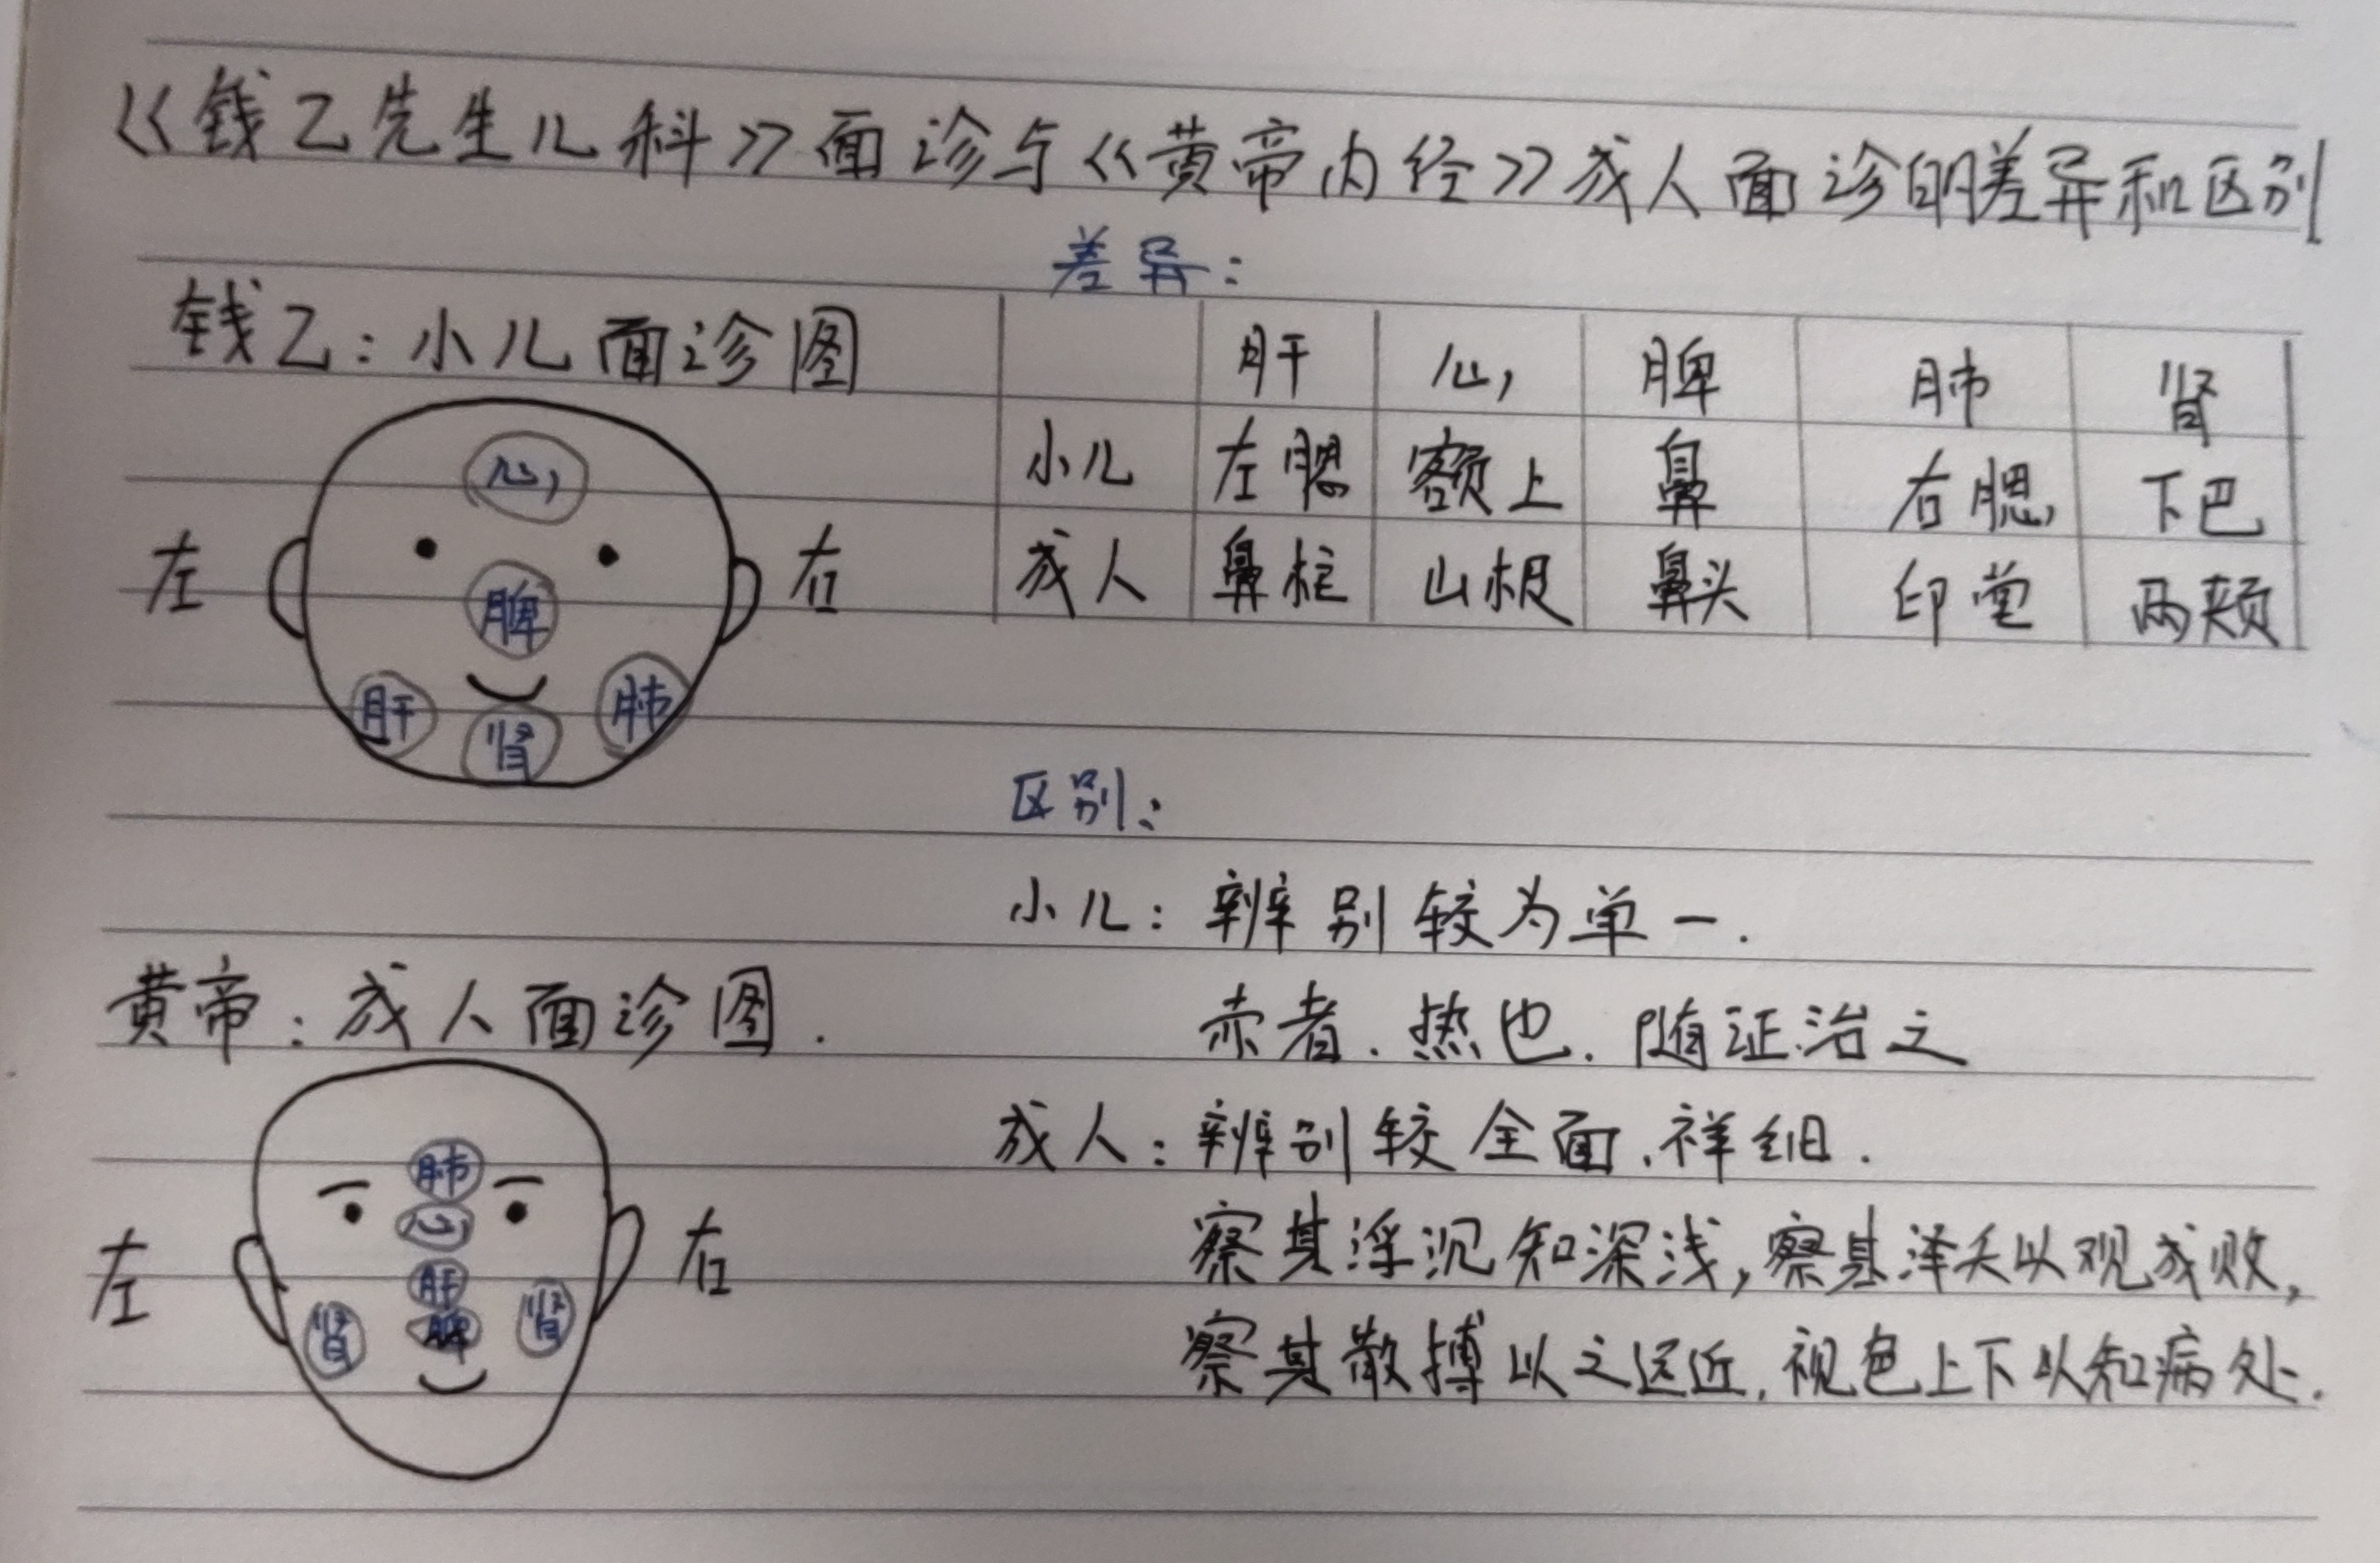 《钱乙先生儿科》面诊与《黄帝内经》成人面诊的差异和区别
差异：
钱乙：小儿面诊图
肝 心 脾 肺 肾
小儿 左腮 额上 鼻 右腮 下巴
成人 鼻柱 山根 鼻头 印堂 两颊
心
左 右
脾
肝 肺
肾
区别：
小儿：辨别较为单一.
赤者.热也.随证治之
黄帝：成人面诊图.
成人：辨别较全面.祥细.
察其浮沉知深浅,察其泽夭以观成败,
察其散搏以之远近,视色上下以知病处.
肺
心
左 右
肝
肾 脾 肾